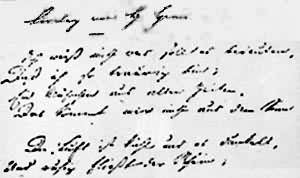 Ich weiß nicht was soll es bedeuten,
Daß ich so traurig bin;
Ein Mährchen aus alten Zeiten,
Das kommt mir nicht aus dem Sinn
Die Luft ist kühl und es dunkelt,
Und ruhig fließt der Rhein;